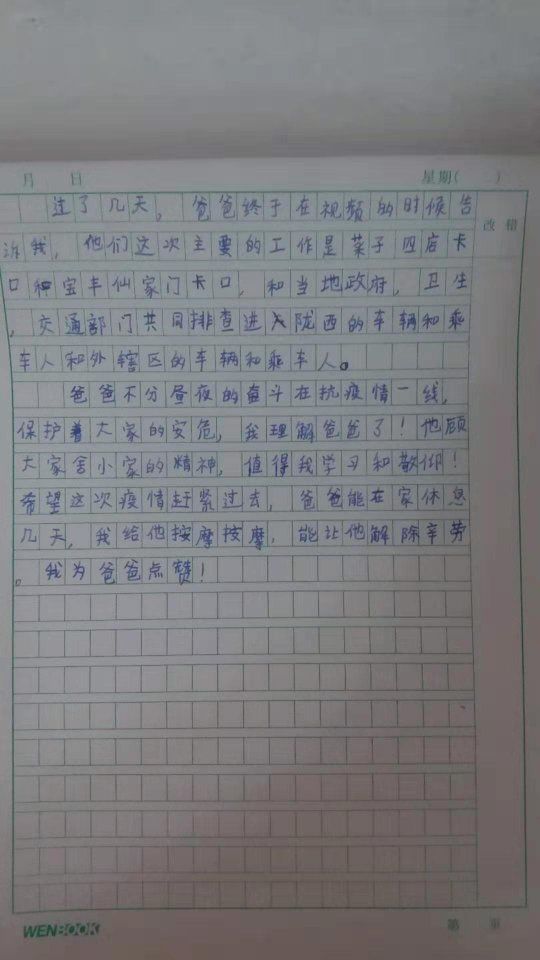 月 日 星期( )
改 错
过了几天，爸爸终于在视频的时候告
诉我，他们这次主要的工作是菜子四店卡
口和宝丰仙家门卡口，和当地政府，卫生
，交通部门共同排查进入陇西的车辆和乘
车人和外辖区的车辆和乘车人。
爸爸不分昼夜的奋斗在抗疫情一线，
保护着大家的安危，我理解爸爸了！他顾
大家舍小家的精神，值得我学习和敬仰！
希望这次疫情赶紧过去，爸爸能在家休息
几天，我给他按摩按摩，能让他解除辛劳
。我为爸爸点赞！
WENBOOK 第 页